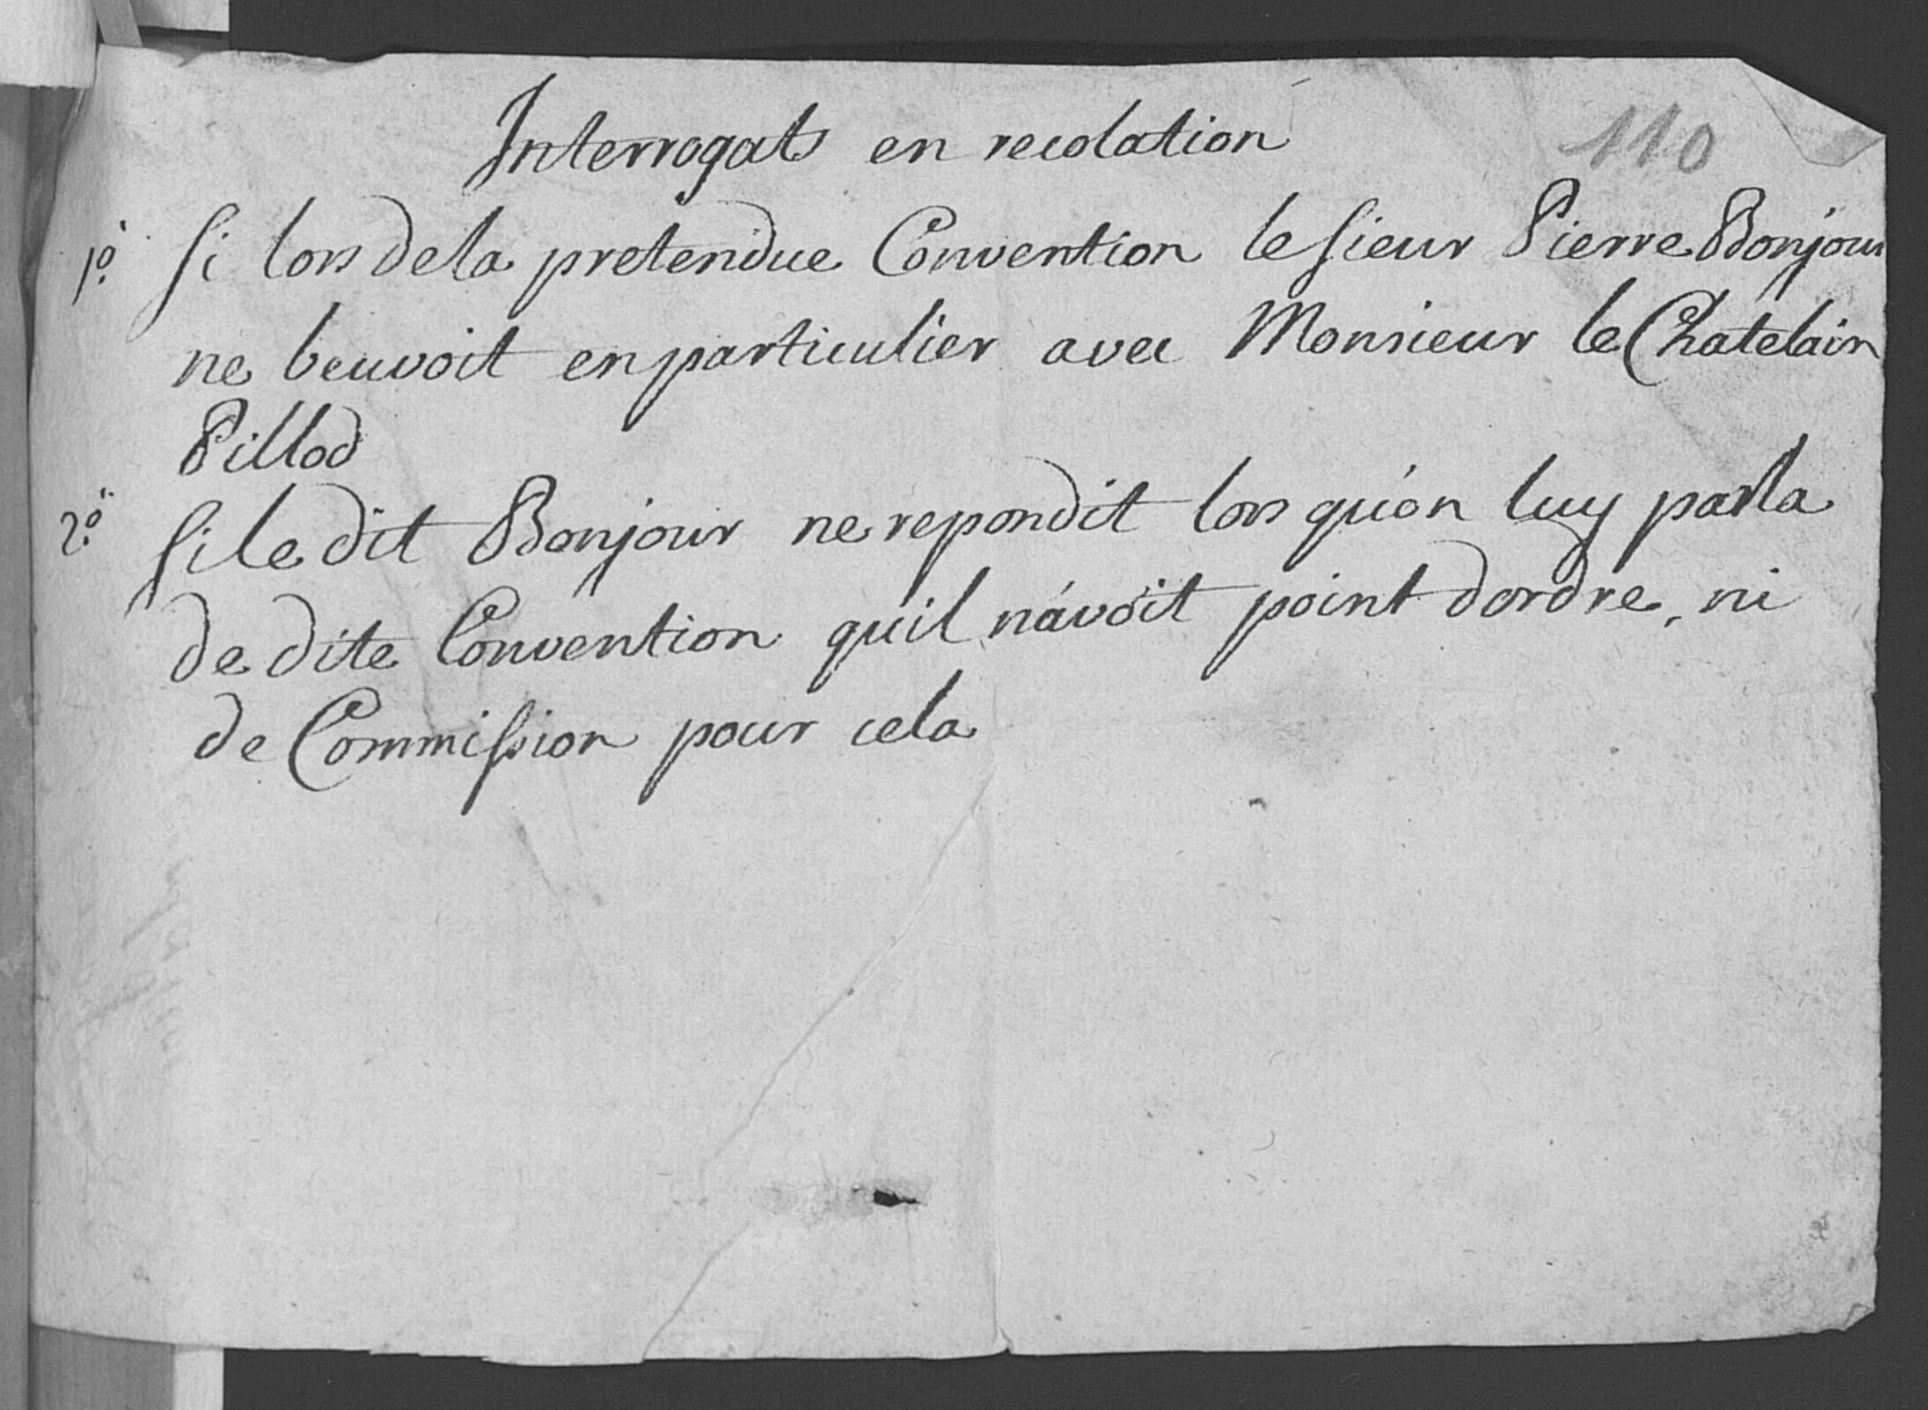 110
Interrogats en recolation
1º. Si lors de la pretendue Convention le sieur Pierre Bonjour
ne beuvoit en particulier avec Monsieur le Chatelain
Pillod
2º. Si le dit Bonjour ne repondit lors qu'on luy parla
de dite Convention quil n'avoit point dordre, ni
de Commission pour cela